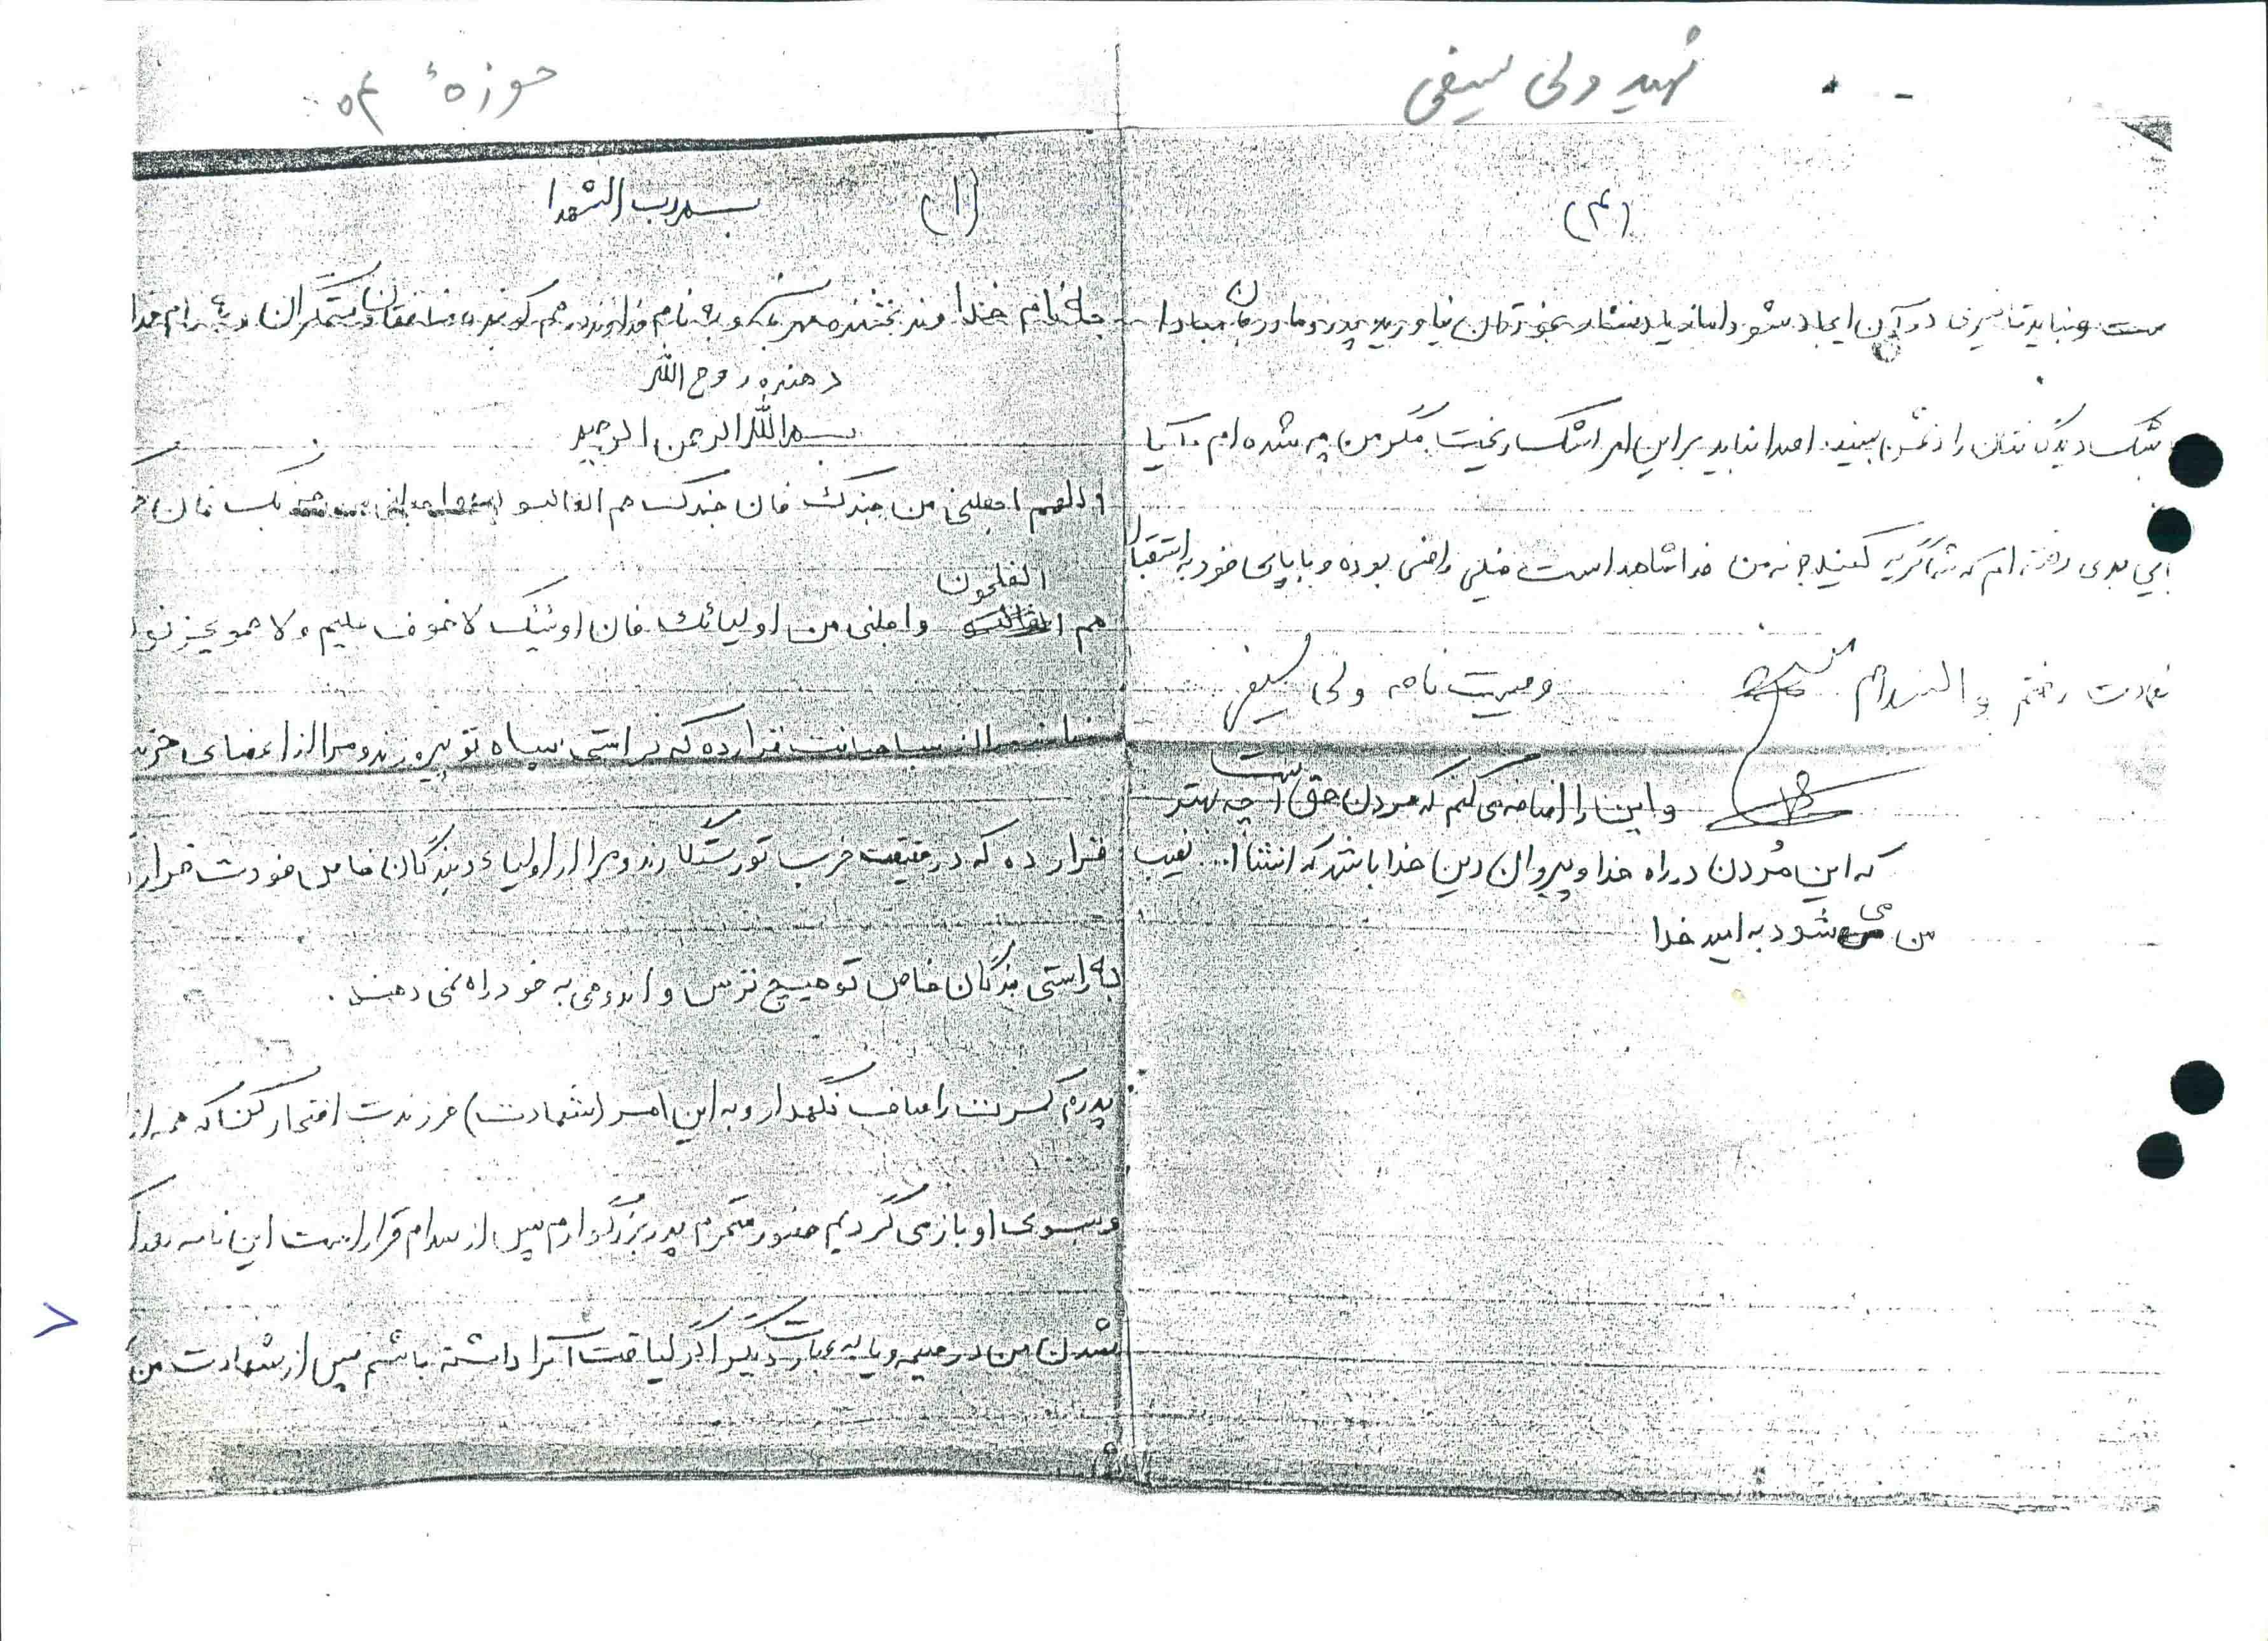 شهید ولی سیفی
حوزهٔ ۵۴
(۱)
بسم رب الشهدا
به نام خداوند بخشنده مهربان و به نام خداوند درهم کوبنده منافقان و ستمگران و به نام خدا
دهنده روح الله
بسم الله الرحمن الرحیم
اللهم اجعلنی من جندک فان جندک هم الغالبو
المفلحون
هم واجلنی من اولیائک فان اولئیک لاخوف علیم ولا همو یحزنو
سپاهیانت قرار ده که براستی سپاه تو پیروزند و مرا از اعضای حزب
قرار ده که در حقیقت حزب تو رستگارند و مرا از اولیاء و بندگان خاص خودت قرار
به راستی بندگان خاص تو هیچ ترس و اندوهی به خود راه نمی دهند.
پدرم کسرت را صاف نگهدار و به این امر (شهادت) فرزندت افتخار کن که همه از
و بسوی او باز می گردیم حضور محترم پدر بزرگوارم پس از سلام قرار است این نامه بعد از
شدن من در ضیمه و یا به عبارت دیگر اگر لیاقت آنرا داشته باشم پس از شهادت من
(۴)
ست و نباید تاثیری در آن ایجاد شود اما نویا دستار بخورتان نیاورید پدر و مادر جان مبادا
شک دیدگانتان را دشمن ببیند. اصدا نباید براین امر اشک ریخت مگر من چه شده ام آیا
ایی بدی رفته ام که شما گریه کنید چرا نه من خدا شاهد است خیلی راضی بوده و با پای خود به استقبال
شهادت رفتم والسلام
وصیت نامه ولی سیفی
و این را اضافه می کنم که مردن حق است چه بهتر
که این مُردن در راه خدا و پیروان دین خدا باشد که انشاأ... نصیب
من می شود به امید خدا